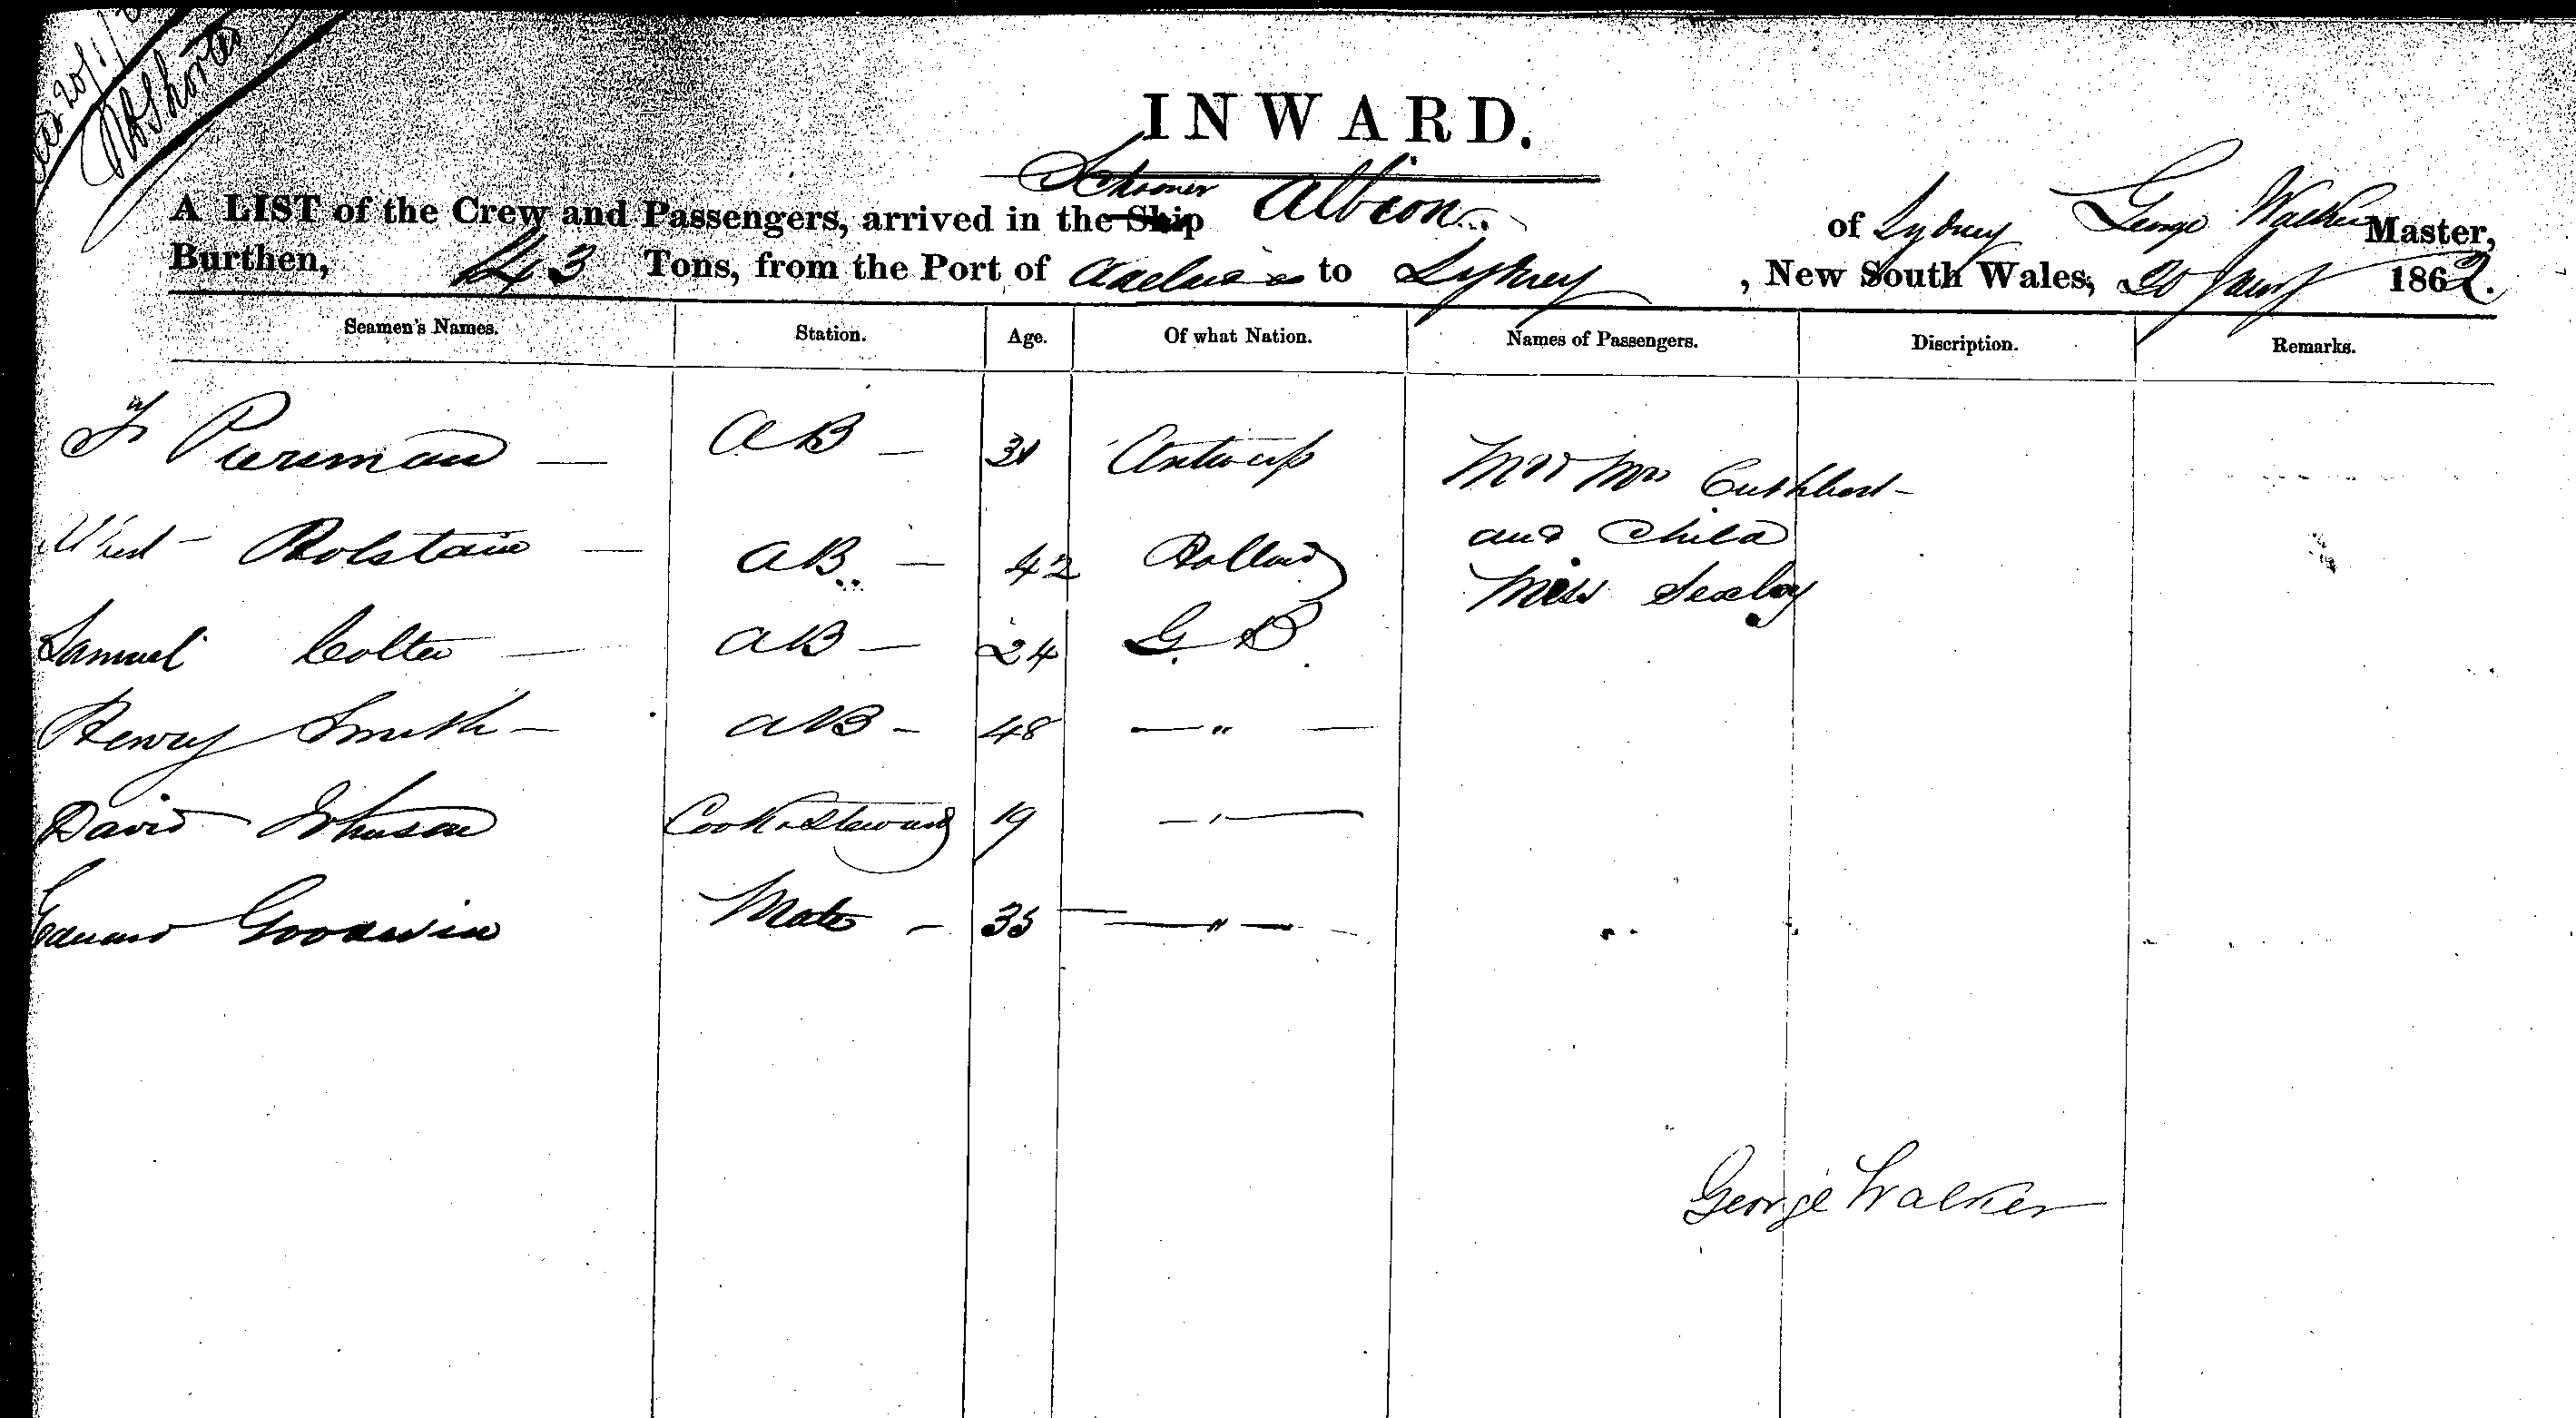 INWARD.
A LIST of the Crew and Passengers, arrived in the Ship Schooner Albion of Sydney George Walker Master,
Burthen, 43 Tons, from the Port of Adelaide to Sydney, New South Wales, 20 Jany 1862.
Seamen's Names. Station. Age. Of what Nation. Names of Passengers. Discription. Remarks.
Pierman — AB — 31 Antwerp Mr & Mrs Cuthbert
Rolstain — AB — 42 Holland and Child
Samuel Colter — AB — 24 G. B Miss Saxby
Henry Smith — AB — 48 — " —
David Johnson Cook & Steward 19 — " —
Edward Goodwin Mate — 35 — " —
George Walker